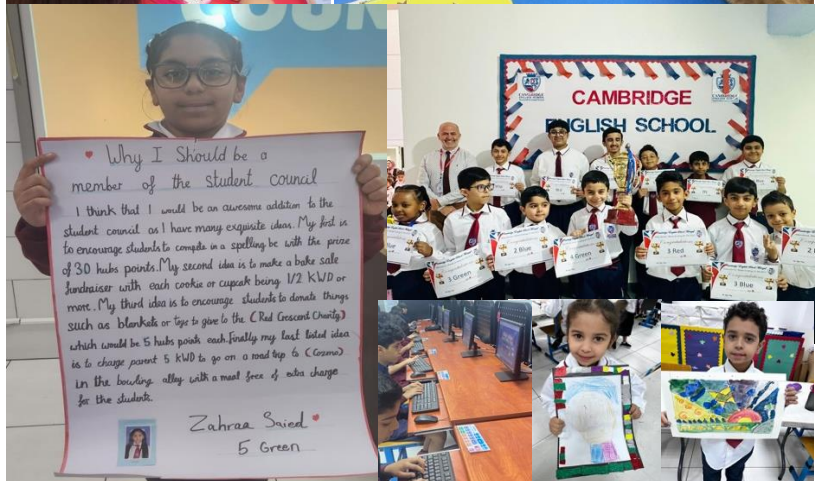 COUN
Why I Should be a
member of the student council
I think that I would be an awesome addition to the
student council as I have many exquisite ideas. My first is
to encourage students to compete in a spelling be with the prize
of 30 hubs points. My second idea is to make a bake sale
fundraiser with each cookie or cupcak being 1/2 KWD or
more. My third idea is to encourage students to donate things
such as blankets or toys to give to the (Red Crescent Charity)
which would be 5 hubs points each. finally my last listed idea
is to charge parent 5 KWD to go on a road trip to (Cozmo)
in the bowling alley with a meal free of extra charge
for the students.
Zahraa Saied
5 Green
CAMBRIDGE
ENGLISH SCHOOL
CAMBRIDGE
CAMBRIDGE
3 Green
2 Blue
4 Green
3 Red
3 Blue